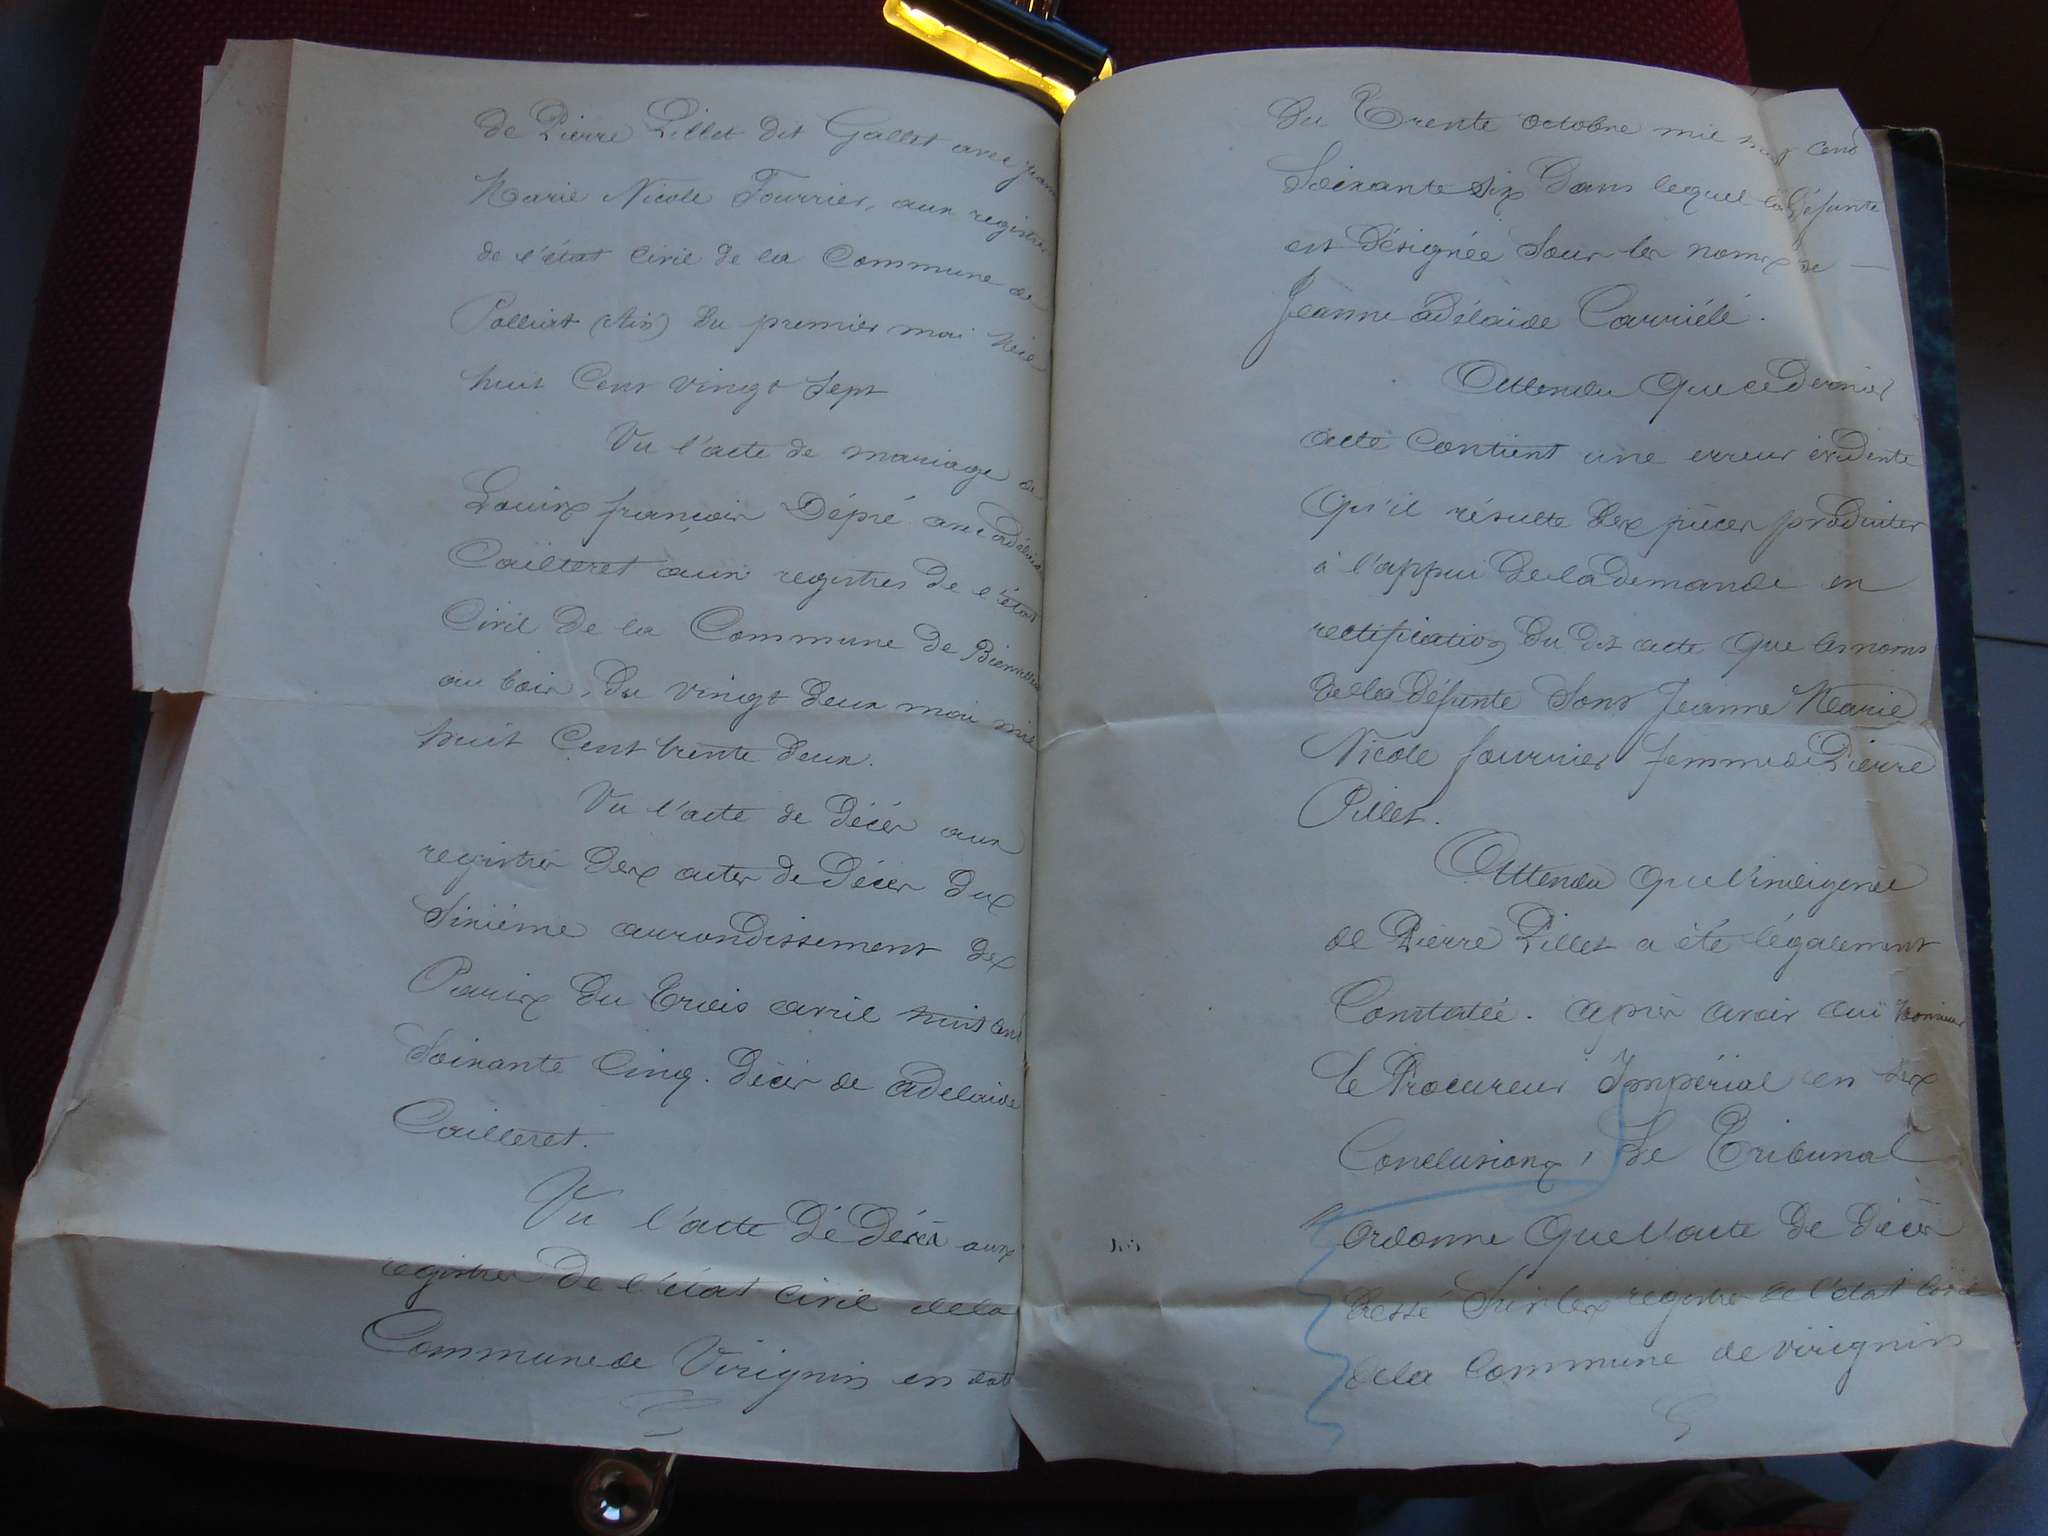 de Pierre Pillet dit Gallet avec Jeanne
Marie Nicole Fourrier, aux registres
de l'état civil de la Commune de
Polliat (Ain) du premier mai Mil
huit Cent vingt Sept
Vu l'acte de mariage de
Louis françois Dépré avec Adélaïde
Cailleret aux registres de l'état
Civil de la Commune de
au bois, du vingt deux mai mil
huit Cent trente deux.
Vu l'acte de Décés aux
registres des actes de Décès du
Sixième arrondissement de
Paris du trois avril huit cent
Soixante Cinq. Décès de Adelaide
Cailleret.
Vu l'acte Dé Décés aux
registres De l'état Civil dela
Commune de Virignin en date
du Trente octobre mil huit cent
Soixante Six dans lequel la Défunte
est désignée Sous les noms de —
Jeanne adélaide Carriélé.
Attendu que ce Dernier
acte Contient une erreur évidente
qu'il résulte des pièces produites
à l'appui de la Demande en
rectification du dit acte que les noms
de la Défunte Sont Jeanne Marie
Nicole fourrier femme de Pierre
Pillet.
Attendu que l'indigence
de Pierre Pillet a été légalement
Constatée. après avoir oui Monsieur
le Procureur Impérial en ses
Conclusions, Le Tribunal
ordonne que l'acte de Décès
dressé Sur les registres de l'état Civil
de la Commune de virignin